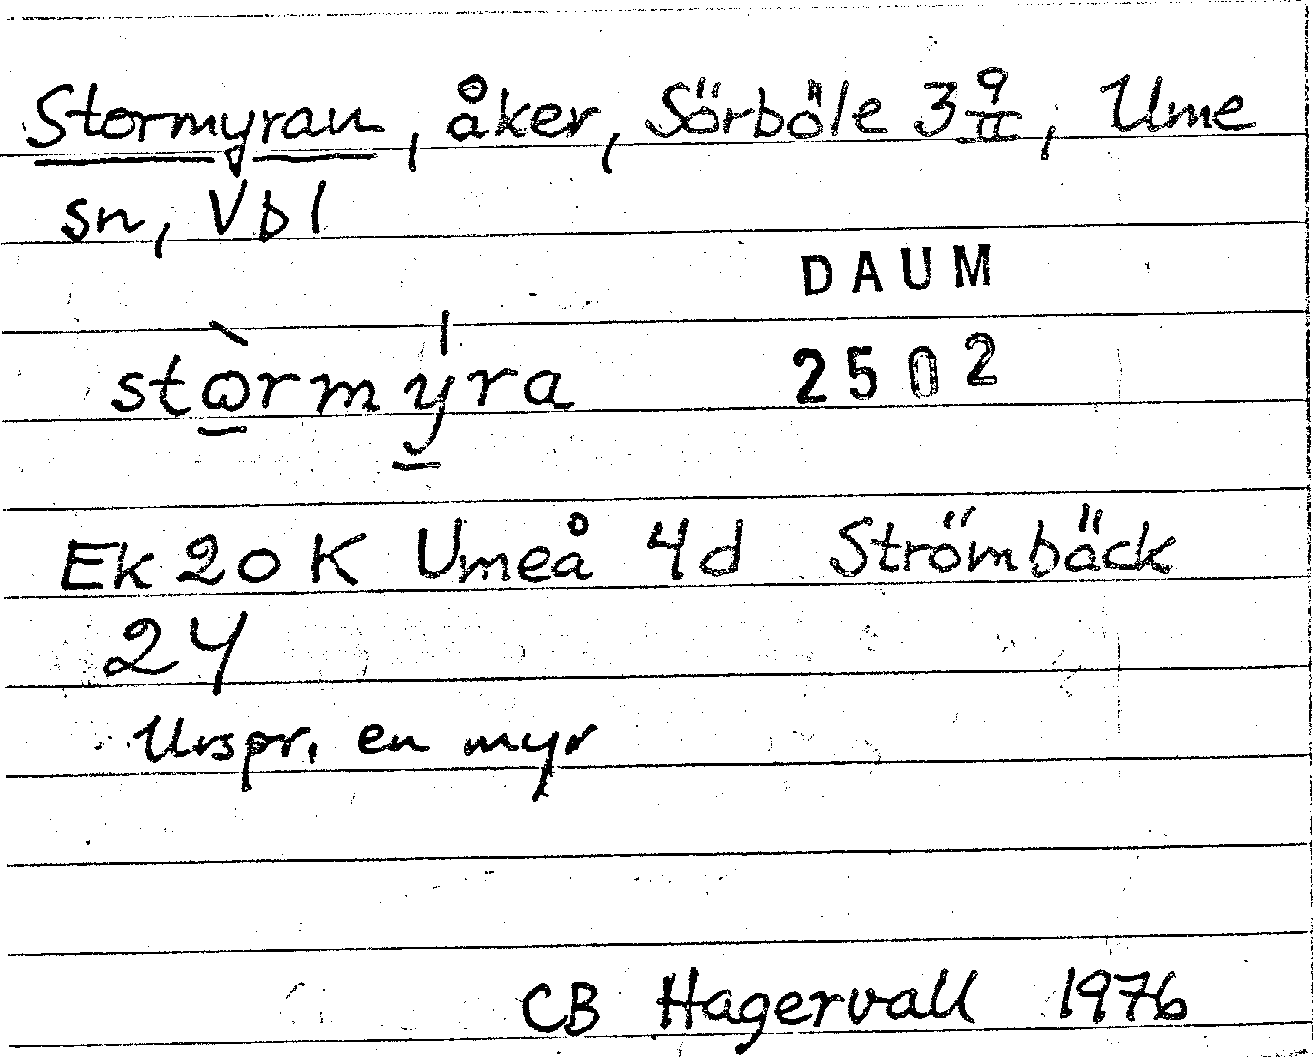 Stormyran, åker, Sörböle 3 9/II, Ume
sn, Vbl
DAUM
stòrmy̍ra 2502
Ek 20 K Umeå 4d Strömbäck
24
Urspr. en myr
CB Hagervall 1976